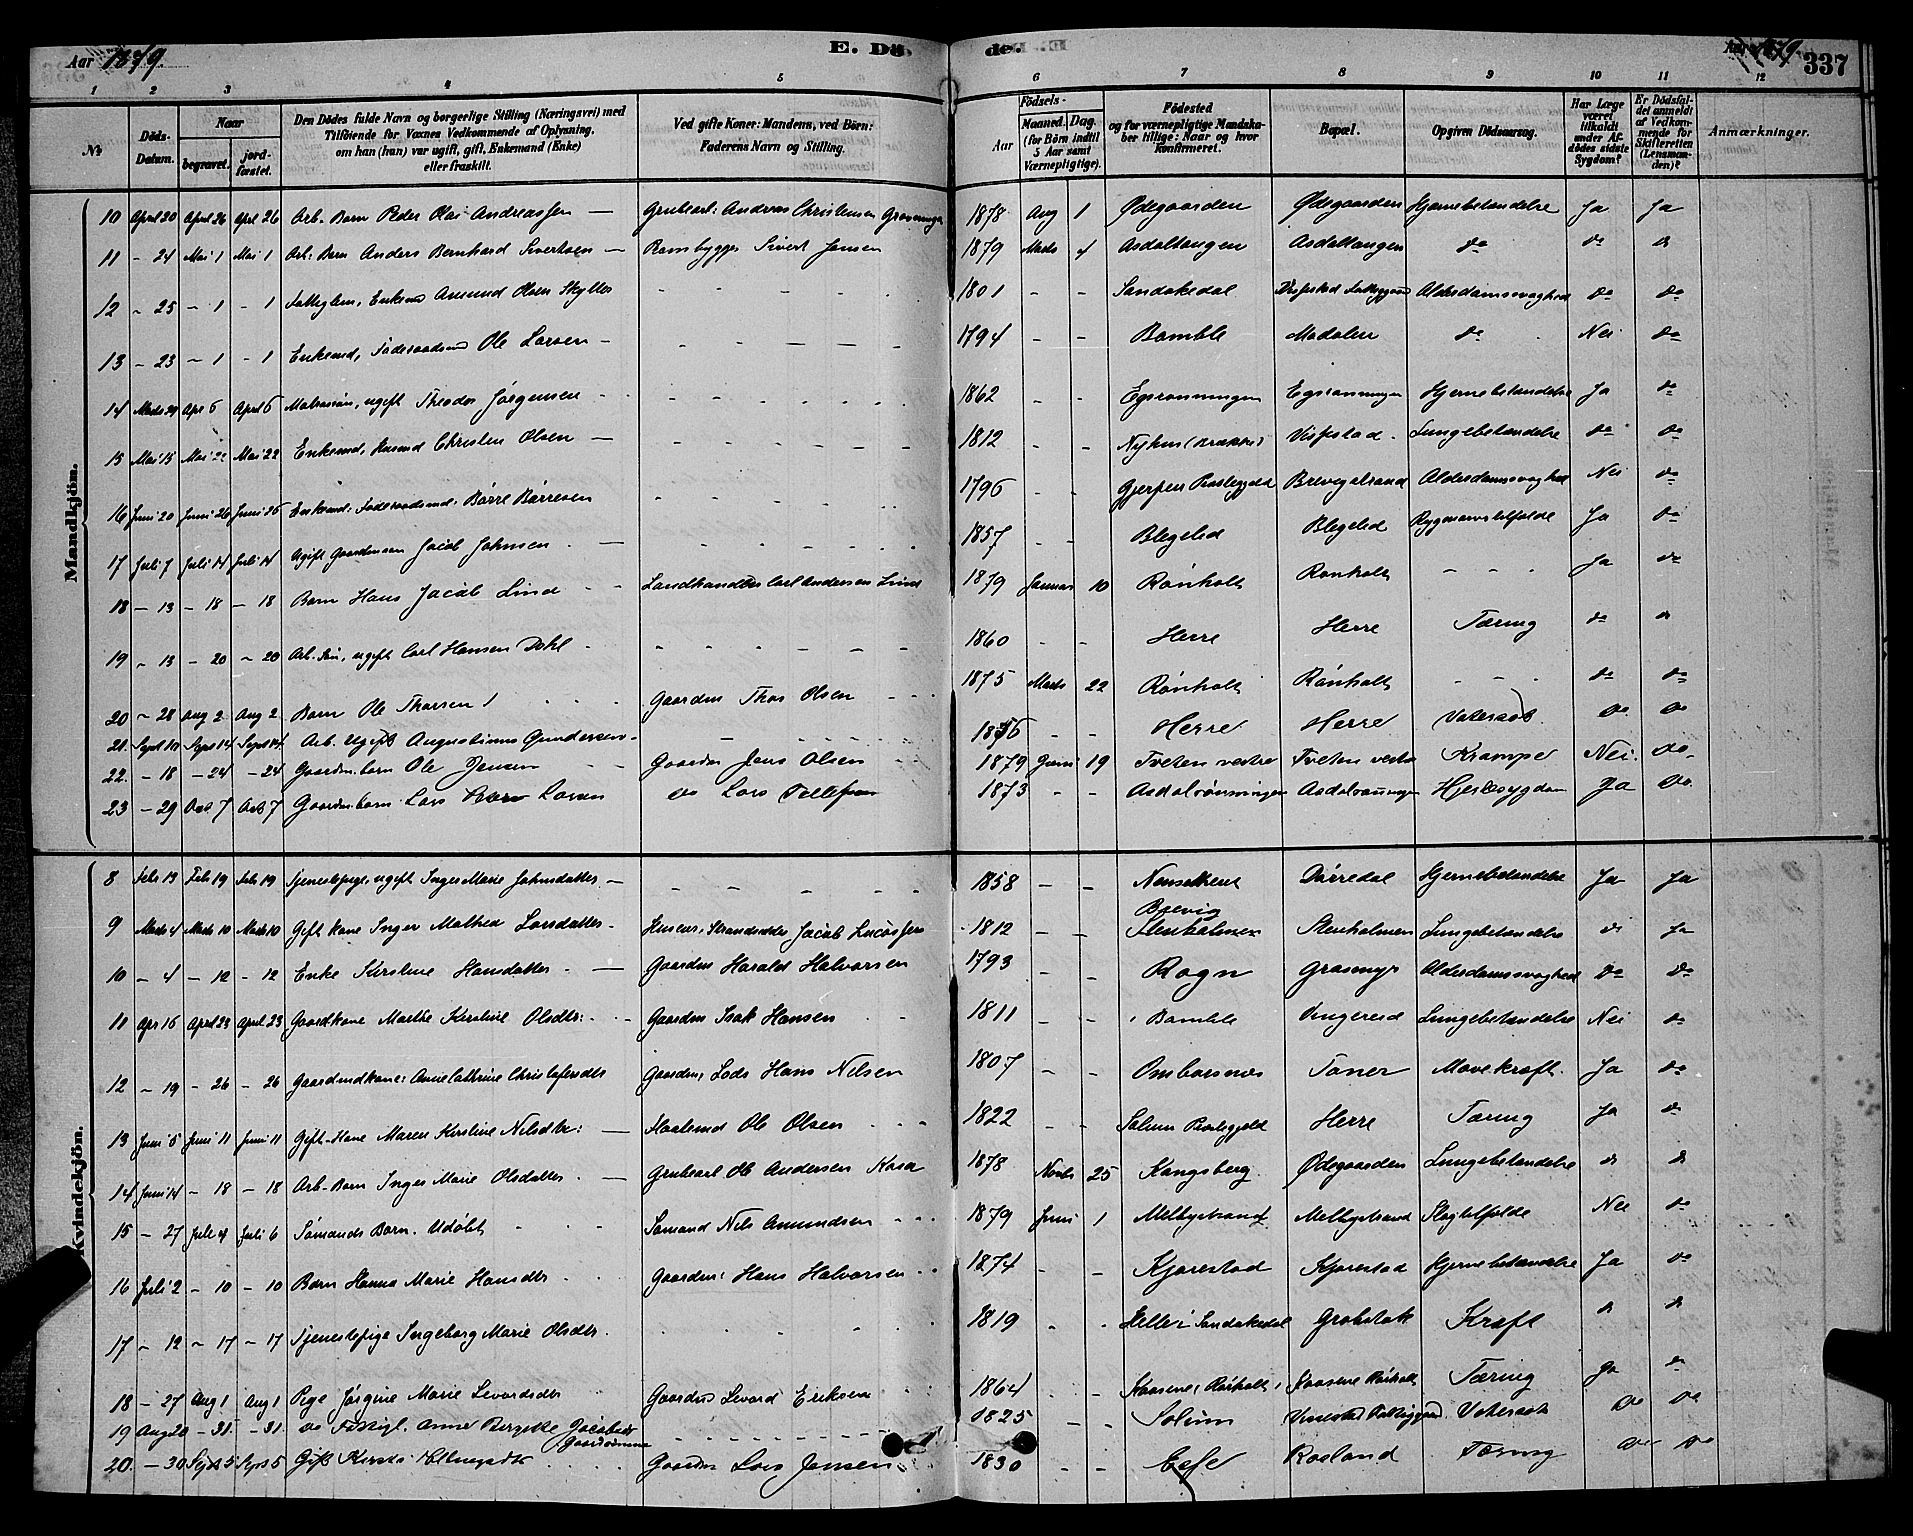 Aar 1879. E. Dö- de. Aar 1879. 337
1 2 3 4 5 6 7 8 9 10 11 12
No
Döds-Datum.
Naar begravet. jord-fæstet.
Den Dödes fulde Navn og borgerlige Stilling (Næringsvei) med Tilföiende for Voxnes Vedkommende af Oplysning, om han (hun) var ugift, gift, Enkemand (Enke) eller fraskilt.
Ved gifte Koner: Mandens, ved Börn: Faderens Navn og Stilling.
Födsels- Aar Maaned. Dag. (for Börn indtil 5 Aar samt Værnepligtige.)
Födested og for værnepligtige Mandska-ber tillige: Naar og hvor konfirmeret.
Bopæl.
Opgiven Dödsaarsag.
Har Læge været tilkaldt under Af-dödes sidste Sygdom?
Er Dödsfal-det anmeldt af Vedkom-mende for Skifteretten (Lensman-den)?
Anmærkninger.
Mandkjön.
10 April 20 April 26 April 26 Arb. Barn Peder Olai Andreassen — Grubearb. Andreas Christensen 1878 Aug 1 Ødegaarden Ødegaarden Hjernebetændelse Ja Ja
11 - 24 Mai 1 Mai 1 Arb. Barn Anders Bernhard Sivertsen — Sivert Jensen 1879 Marts 4 Asdaltangen Asdaltangen do do do
12 - 25 - 1 - 1 Enkemd Amund Olsen - - 1801 - - Sandøkedal Alderdomssvaghed do do
13 - 23 - 1 - 1 Enkemd, Føderaadsmd Ole Larsen - - 1794 - - Bamble Nei do
14 Marts 29 Apr 6 April 6 ugift Theodor Jørgensen - - 1862 Hjernebetændelse Ja do
15 Mai 15 Mai 22 Mai 22 Enkemd, Husmd Christen Olsen — 1812 - - Lungebetændelse do do
16 Juni 20 Juni 26 Juni 26 Enkemd: Føderaadsmd: Børre Børresen 1796 - - Gjerpen Præstegjeld Brevigstrand Alderdomssvaghed Nei do
17 Juli 7 Juli 14 Juli 14 Ugift Gaardmansøn Jacob Johnsen — 1857 - - Blegelid Blegelid Ja do
18 - 13 - 18 - 18 Barn Hans Jacob Lind - - Landhandler Carl Andersen Lind 1879 Januar 10 Rønholt Rønholt - - - Ja do
19 - 13 - 20 - 20 ugift Carl Hansen Dahl - - 1860 - - Herre Herre Tæring do do
20 - 28 Aug 2 Aug 2 Barn Ole Thorsen Gaardmd Thor Olsen 1875 Marts 22 Rønholt Rønholt - - do do
21. Sept 10 Sept 14 Sept 14 Arb. Ugift Augustinus Gundersen - - - Herre Herre Vatersot do do
22. - 18 - 24 - 24 Gaardm. barn Ole Jensen Gaardm Jens Olsen 1879 Juni 19 Tveten vestre Tveten vestre Krampe Nei. do
23 - 29 Oct 7 Oct 7 Gaardm. barn Lars Larsen do Lars Tellefsen 1873 - - Asdalrønningen Asdalrønningen Hjertesygdom Ja do
Kvindekjön.
8 Febr 13 Feb 19 Feb 19 Tjenestepige, ugift Inger Marie Johnsdatter — 1858 - - Dørredal Hjernebetændelse Ja Ja
9 Marts 4 Marts 10 Marts 10 Gift Kone Inger Mathea Larsdatter - Strandsidder Jacob 1812 - - Brevig Stenholmen Stenholmen Lungebetændelse do Ja
10 - 4 - 12 - 12 Enke Kirstine Hansdatter — Gaardmd Harald Halvorsen 1793 - - Rogn Grasmyr Alderdomssvaghed do do
11 Apr 16 April 23 April 23 Gaardkone Marthe Kirstine Olsdtr: - Gaardmd Isak Hansen 1811 - - Bamble Vingereid Lungebetændelse Nei do
12 - 19 - 26 - 26 Gaardmdkone: Anne Cathrine Christofersdtr Gaardm, Lods Hans Nilsen 1807 - - Ombarsnes Toner Mavekræft. Ja do
13 Juni 5 Juni 11 Juni 11 Gift Kone Maren Kirstine Nilsdtr: — Ole Olsen 1822 - - Solum Præstegjeld Herre Tæring Ja do
14 Juni 14 - 18 - 18 Arb. Barn Inger Marie Olsdatter — Grubearb Ole Andersen Kasa 1878 Novbr 25 Kongsberg Ødegaarden Lungebetændelse do do
15 - 27 Juli 4 Juli 6 Sømands Barn. Udøbt Sømand Nils Amundsen 1879 Juni 1 Melbystrand Melbystrand Slagtilfælde Nei do
16 Juli 2 - 10 - 10 Barn Hanna Marie Hansdtr Gaardm: Hans Halvorsen 1874 - - Kjørestad Kjørestad Hjernebetændelse Ja do
17 - 12 - 17 - 17 Tjenestepige Ingeborg Marie Olsdtr. 1819 - - Helle i Sandøkedal Grobstok Kræft do do
18 - 27 Aug 1 Aug 1 Pige Jørgine Marie Levordsdtr Gaardmd Levord Eriksen 1864 - - Kaasene, Rønholt, Kaasene Rønholt Tæring Ja do
19 Aug 20 - 31. - 31. do Anne Birgitte Jacobsdtr - - 1825 - - Solum Vatersot do do
20. - 30 Sept 5 Sept 5 Gift Kirsti Gaardm Lars Jensen 1830 - - Rosland Tæring do do